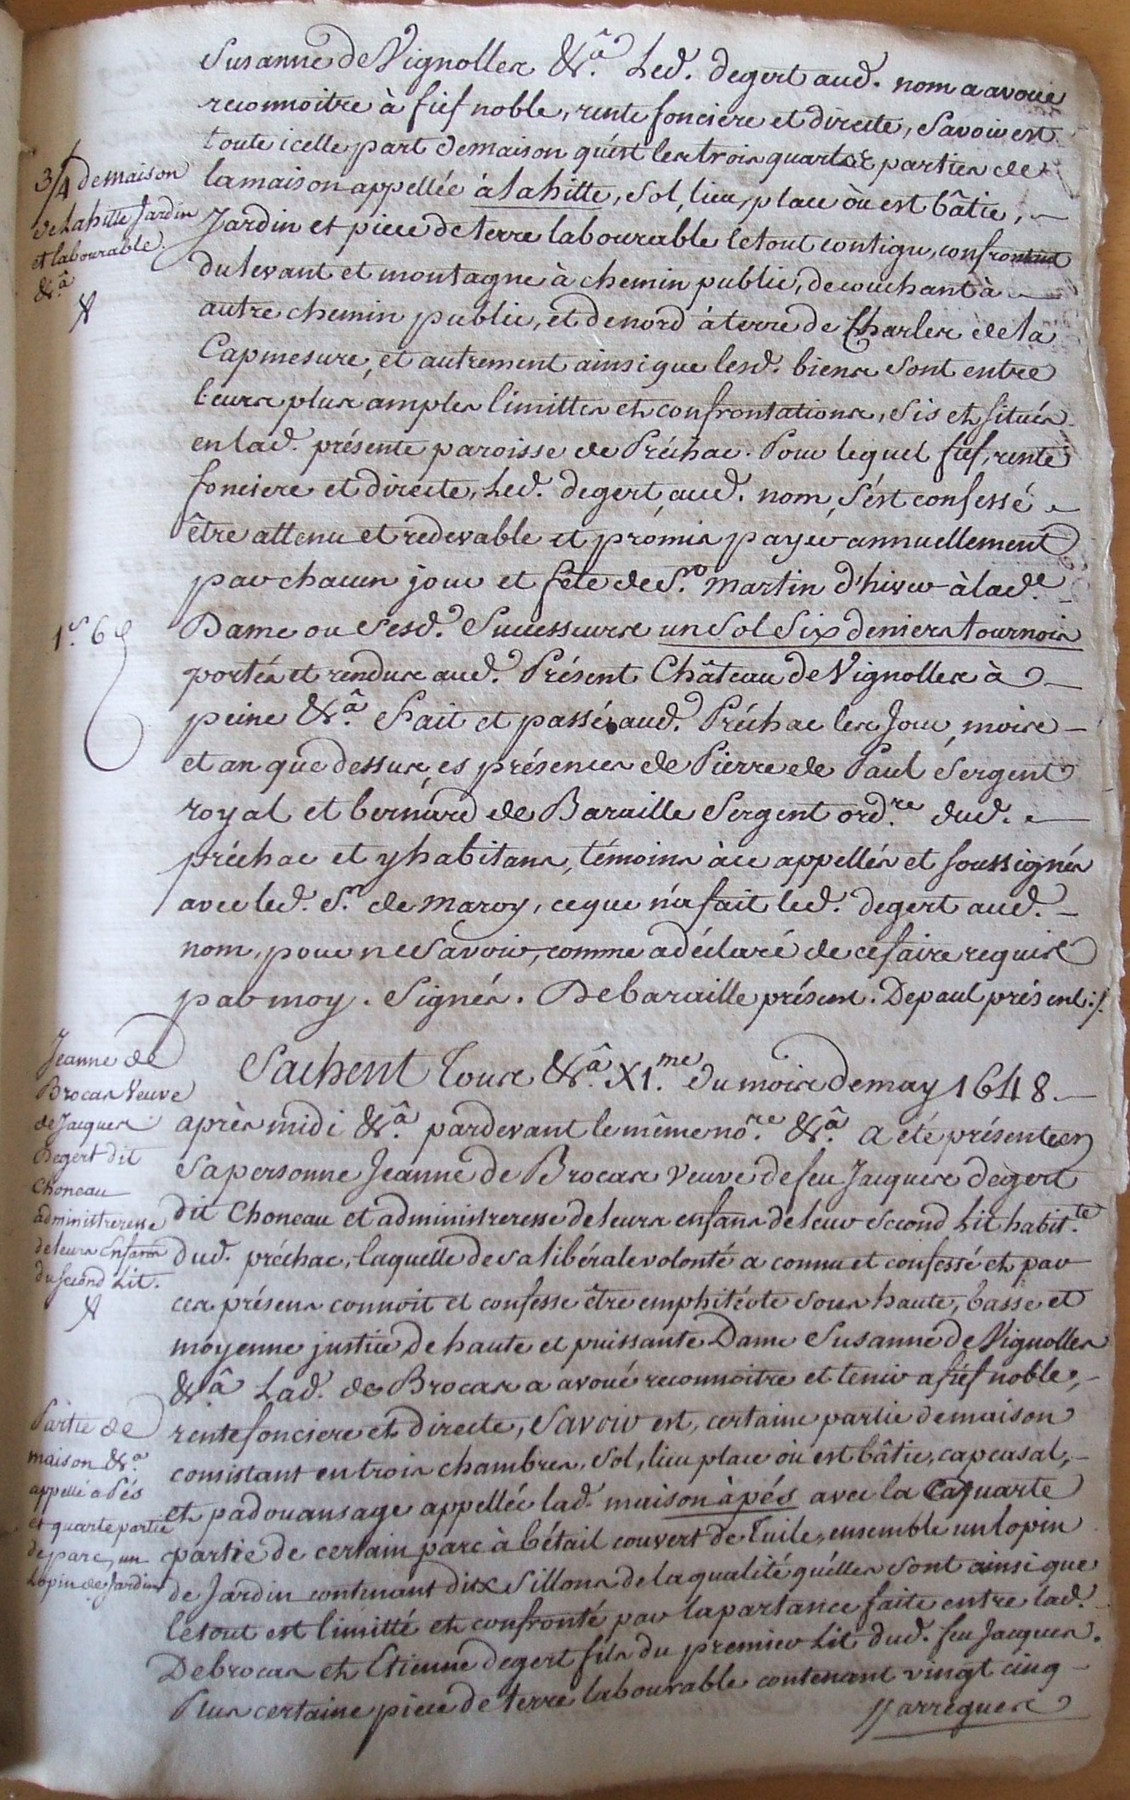 Susanne de Vignolles &.ª Led. degert aud. nom a avoué
reconnoitre à fief noble, rente fonciere et directe, Savoir est
toute icelle part de maison qu'est les trois quarts parties de
3/4 de maison
de Lahitte Jardin
et labourable
&.ª
la maison appellée à lahitte, Sol, lieu, place où est bâtie,
Jardin et piece de terre labourable le tout contigu, confrontant
du levant et montagne à chemin public, de couchant à
autre chemin public, et de nord à terre de Charles de la
Capmesure, et autrement ainsi que lesd. biens sont entre
leurs plus amples limittes et confrontations, sis et situés
en lad. présente paroisse de Préchac. Pour lequel fief, rente
fonciere et directe, Led. degert, aud. nom, s'ést confessé
être attenu et redevable et promis payer annuellement
par chacun jour et fête de St. Martin d'hiver à lad.e
1.s 6 d
Dame ou Sesd. Successeurs un Sol Six deniers tournois
portés et rendus aud. Présent Château de Vignolles à
peine &.ª Fait et passé aud. Préchac les Jour, mois
et an que dessus, es présences de Pierre de Paul Sergent
royal et bernard de Baraille Sergent ord.re dud.
préchac et y habitans, témoins à ce appellés et soussignés
avec led. S.r de Maroy, ce que n'a fait led. degert aud.
nom, pour ne Savoir, comme a déclaré de ce faire requis
par moy. Signés. Debaraille présent. Depaul présent./.
Jeanne de
Brocas Veuve
de Jacques
Degert dit
Choneau
administreresse
de leurs Enfans
du second Lit.
Sachent Tous &.ª XI.me du mois de may 1648.
après midi &.ª pardevant le même no.re &.ª a été présente en
Sa personne Jeanne de Brocas veuve de feu Jacques degert
dit Choneau et administreresse de leurs enfans de leur second Lit habit.te
dud. préchac, laquelle de sa libérale volonté a connu et confessé et par
ces présens connoit et confesse être emphitéote sous haute, basse et
moyenne justice de haute et puissante Dame Susanne de Vignolles
&.ª Lad. de Brocas a avoué reconnoitre et tenir a fief noble,
Partie de
maison &.ª
appellé à Pés
et quarte partie
de parc, un
Lopin de Jardin
rente fonciere et directe, Savoir est, certaine partie de maison
consistant en trois chambres, Sol, lieu place où est bâtie, capcasal,
et padouansage appellée lad. maison à pés avec la quarte
partie de certain parc à bétail couvert de Tuile, ensemble un lopin
de Jardin contenant dix Sillons de la qualité qu'elles sont ainsi que
le tout est limitté et confronté par la partance faite entre lad.
Debrocas et Etienne degert fils du premier Lit dud. feu Jacques.
Plus certaine piece de terre labourable contenant vingt cinq
arregues